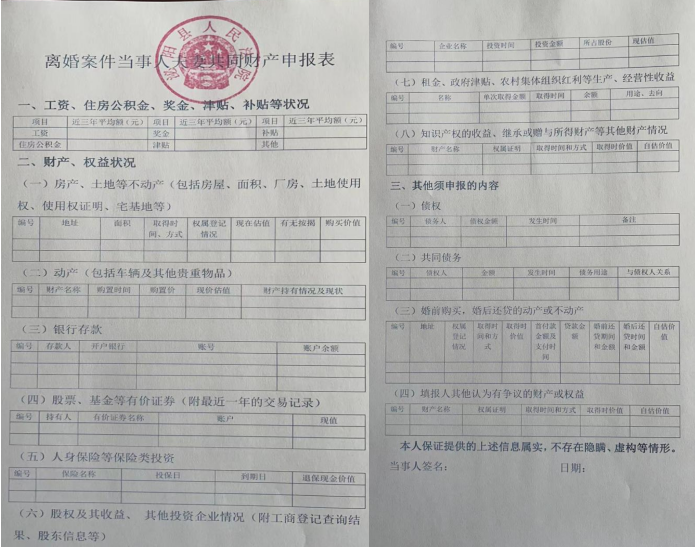 离婚案件当事人夫妻共同财产申报表
一、工资、住房公积金、奖金、津贴、补贴等状况
项目 近三年平均额（元） 项目 近三年平均额（元） 项目 近三年平均额（元）
工资 奖金 补贴
住房公积金 津贴 其他
二、财产、权益状况
（一）房产、土地等不动产（包括房屋、面积、厂房、土地使用
权、使用权证明、宅基地等）
编号 地址 面积 取得时间、方式 权属登记情况 现在估值 有无按揭 购买价值
（二）动产（包括车辆及其他贵重物品）
编号 财产名称 购置时间 购置价 现价估值 财产持有情况及现状
（三）银行存款
编号 存款人 开户银行 账号 账户金额
（四）股票、基金等有价证券（附最近一年的交易记录）
编号 持有人 有价证券名称 账户 现值
（五）人身保险等保险类投资
编号 保险名称 投保日 到期日 退保现金价值
（六）股权及其收益、其他投资企业情况（附工商登记查询结
果、股东信息等）
编号 企业名称 投资时间 投资金额 所占股份 现估值
（七）租金、政府津贴、农村集体组织红利等生产、经营性收益
编号 名称 单次取得金额 取得时间 金额 用途、去向
（八）知识产权的收益、继承或赠与所得财产等其他财产情况
编号 财产名称 权属证明 取得时间和方式 取得时价值 自估价值
三、其他须申报的内容
（一）债权
编号 债务人 债权金额 发生时间 备注
（二）共同债务
编号 债权人 金额 发生时间 债务用途 与债权人关系
（三）婚前购买，婚后还贷的动产或不动产
编号 地址 权属登记情况 取得时间和方式 取得时价值 首付款金额及支付时间 贷款金额 婚前还贷期间和金额 婚后还贷时间和金额 自估价值
（四）填报人其他认为有争议的财产或权益
编号 财产名称 权属证明 取得时间和方式 取得时价值 自估价值
本人保证提供的上述信息属实，不存在隐瞒、虚构等情形。
当事人签名： 日期：